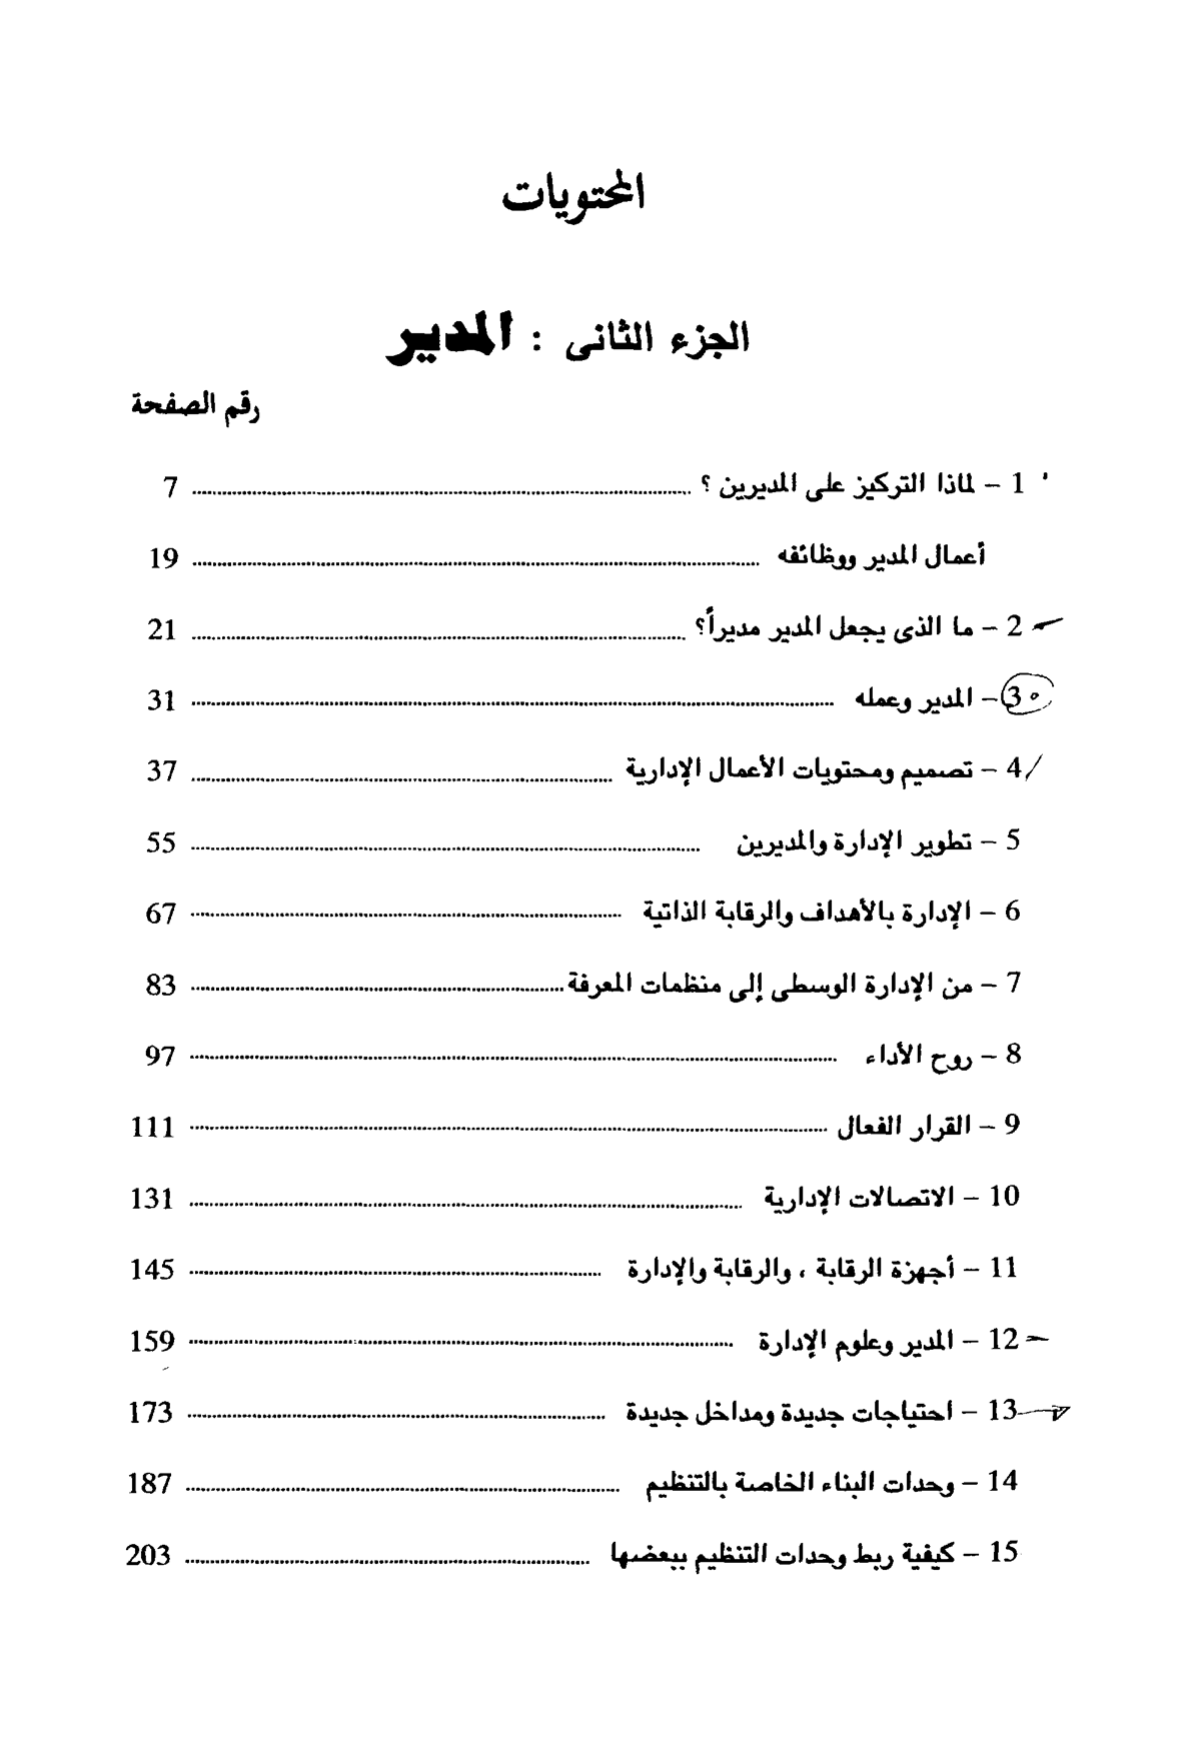 المحتويات
الجزء الثانى : المدير
رقم الصفحة
1 – لماذا التركيز على المديرين ؟ 7
أعمال المدير ووظائفه 19
2 – ما الذى يجعل المدير مديراً؟ 21
3 – المدير وعمله 31
4 – تصميم ومحتويات الأعمال الإدارية 37
5 – تطوير الإدارة والمديرين 55
6 – الإدارة بالأهداف والرقابة الذاتية 67
7 – من الإدارة الوسطى إلى منظمات المعرفة 83
8 – روح الأداء 97
9 – القرار الفعال 111
10 – الاتصالات الإدارية 131
11 – أجهزة الرقابة ، والرقابة والإدارة 145
12 – المدير وعلوم الإدارة 159
13 – احتياجات جديدة ومداخل جديدة 173
14 – وحدات البناء الخاصة بالتنظيم 187
15 – كيفية ربط وحدات التنظيم ببعضها 203